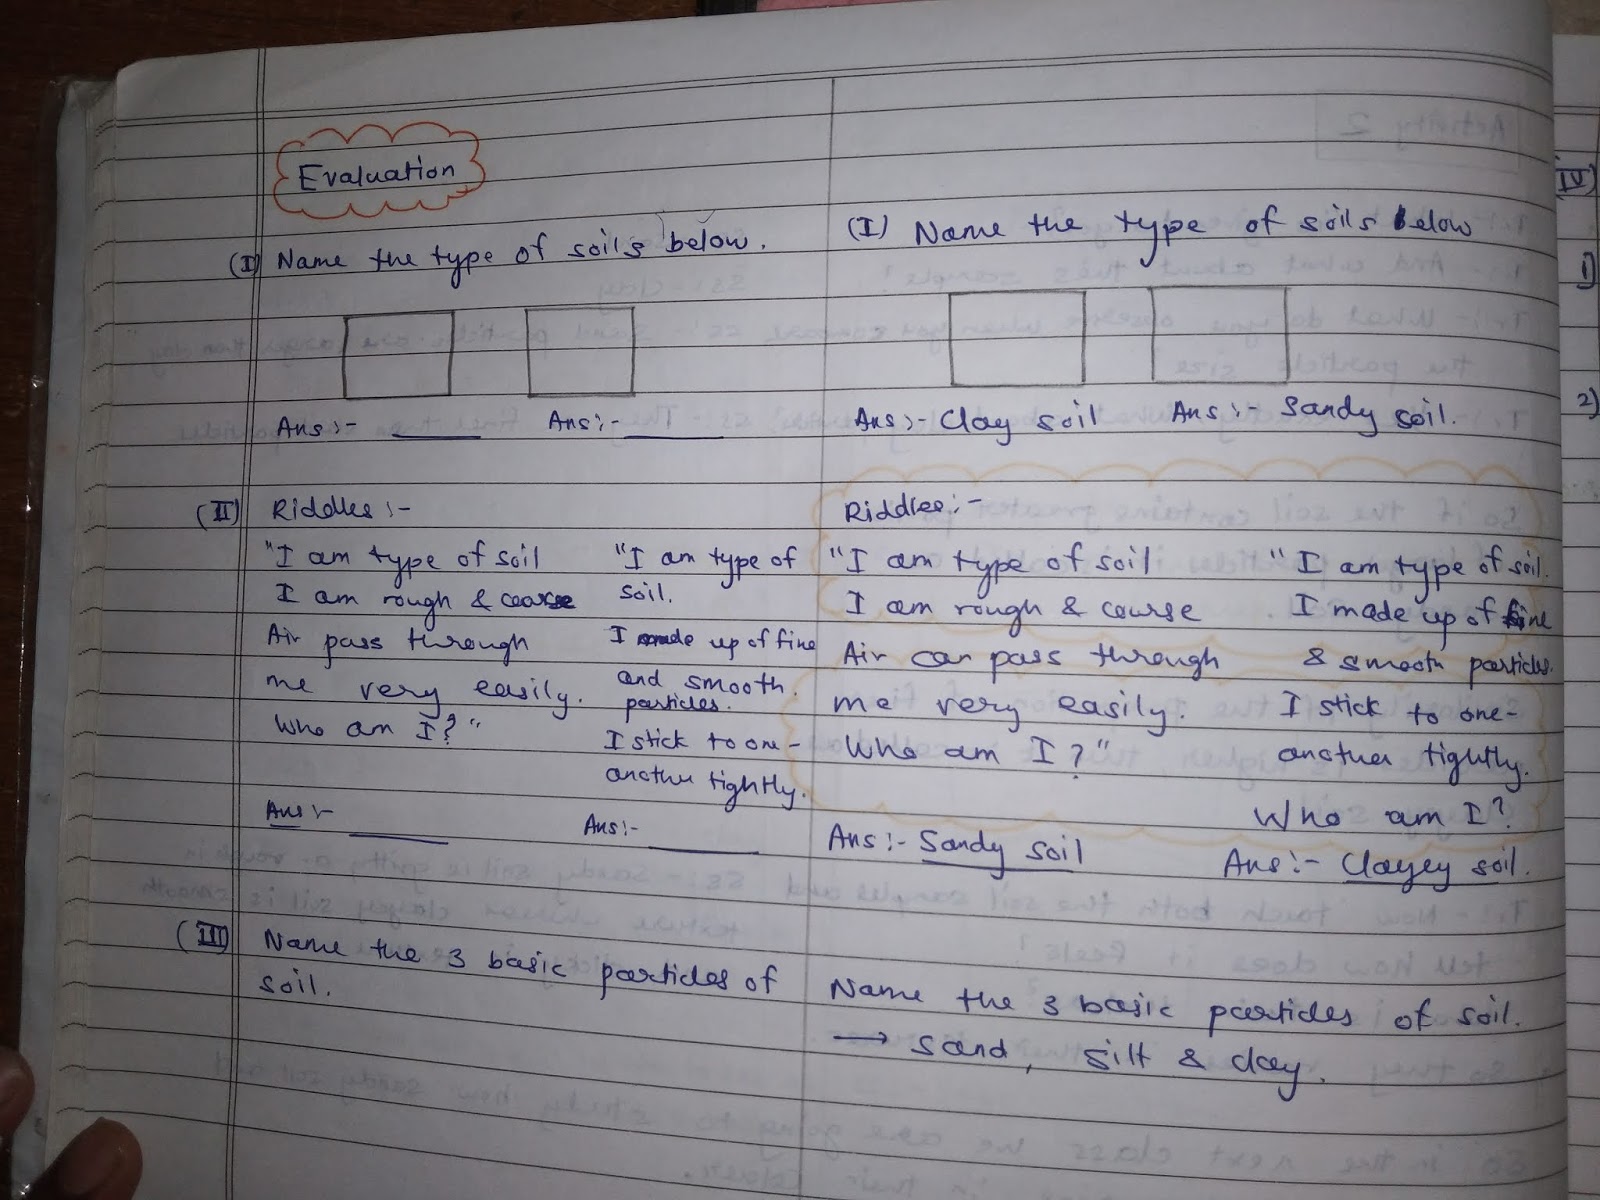 Evaluation
(I) Name the type of soils below.
Ans :- ______ Ans:- ______
(II) Riddles :-
"I am type of soil
I am rough & coarse
Air pass through
me very easily.
Who am I?"
Ans :- ______
"I am type of
soil.
I made up of fine
and smooth
particles.
I stick to one-
another tightly.
Ans:- ______
(III) Name the 3 basic particles of
soil.
(I) Name the type of soils below
Ans :- Clay soil Ans :- Sandy soil.
Riddles :-
"I am type of soil
I am rough & course
Air can pass through
me very easily.
Who am I?"
Ans :- Sandy soil
"I am type of soil.
I made up of fine
& smooth particles.
I stick to one-
another tightly.
Who am I?
Ans :- Clayey soil.
Name the 3 basic particles of soil.
→ sand, silt & clay.
IV)
1)
2)